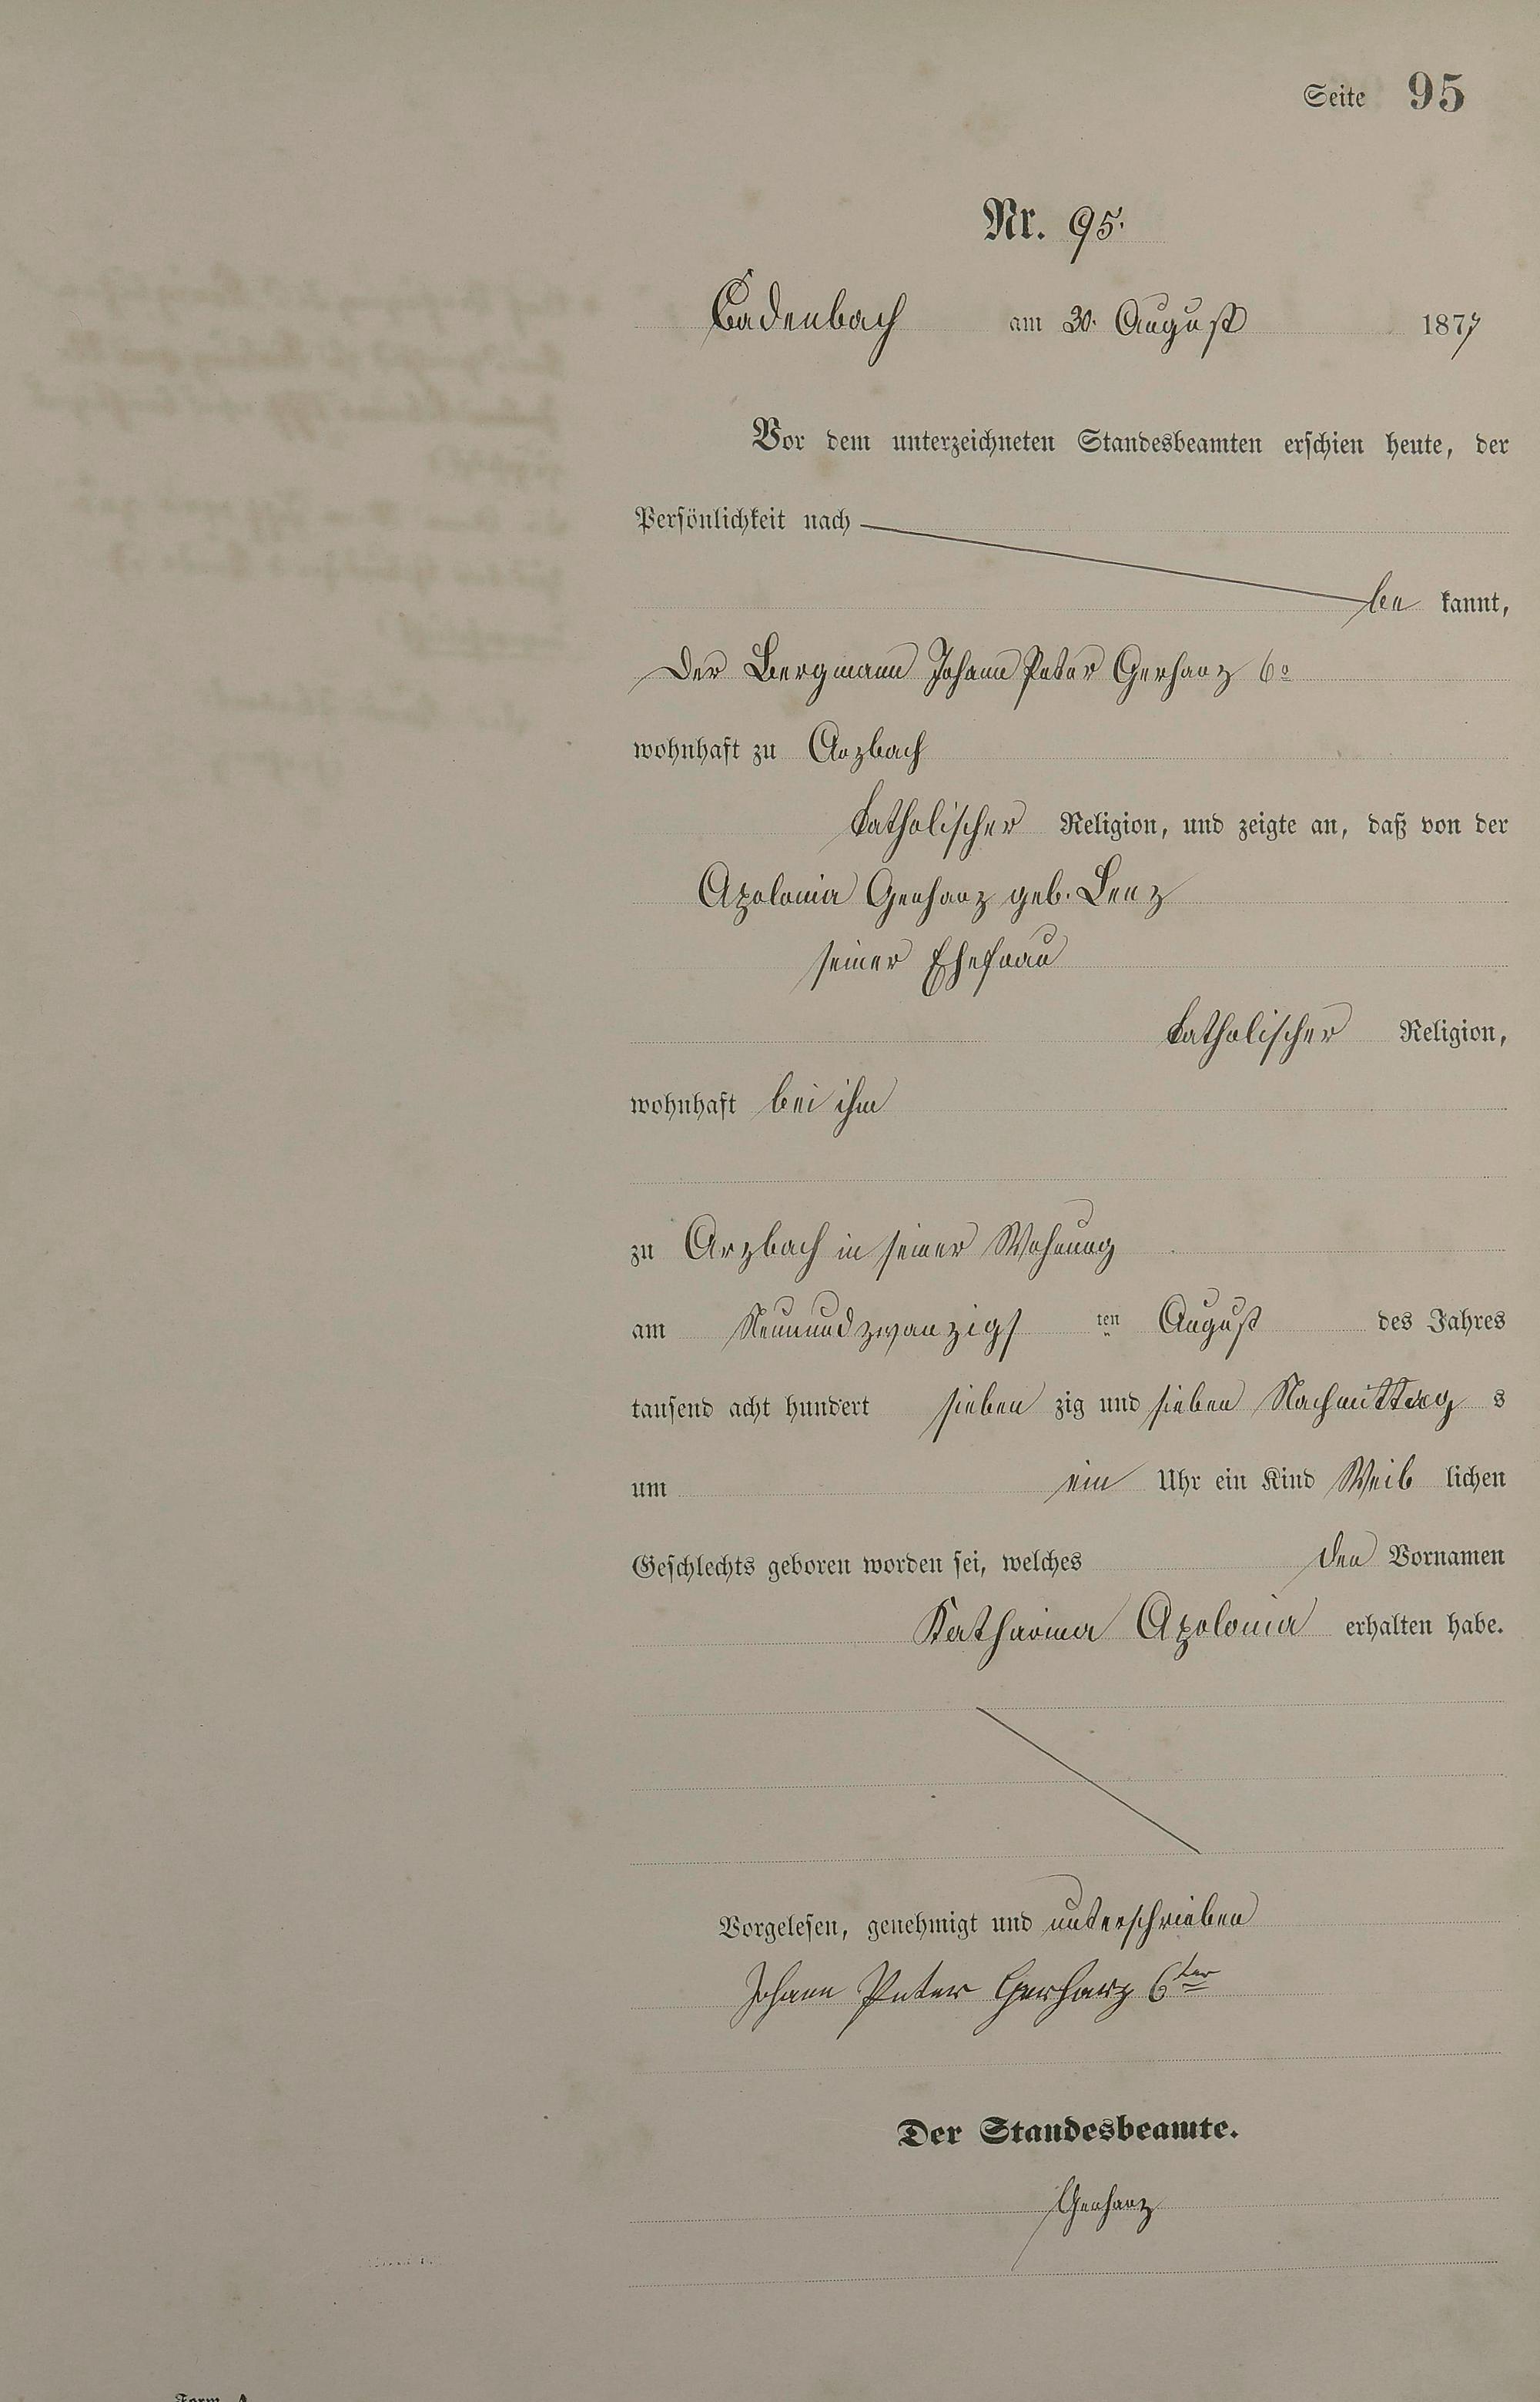 Seite 95
Nr. 95.
Cadenbach am 30. August 1877
Vor dem unterzeichneten Standesbeamten erschien heute, der
Persönlichkeit nach
be kannt,
der Bergmann Johann Peter Gerharz 6º
wohnhaft zu Arzbach
katholischer Religion, und zeigte an, daß von der
Apolonia Gerharz geb. Lenz
seiner Ehefrau
katholischer Religion,
wohnhaft bei ihm
zu Arzbach in seiner Wohnung
am Neunundzwanzigs ten August des Jahres
tausend acht hundert sieben zig und sieben Nachmittag s
um ein Uhr ein Kind Weib lichen
Geschlechts geboren worden sei, welches den Vornamen
Katharina Apolonia erhalten habe.
Vorgelesen, genehmigt und unterschrieben
Johann Peter Gerharz 6ter
Der Standesbeamte.
Gerharz
Form A